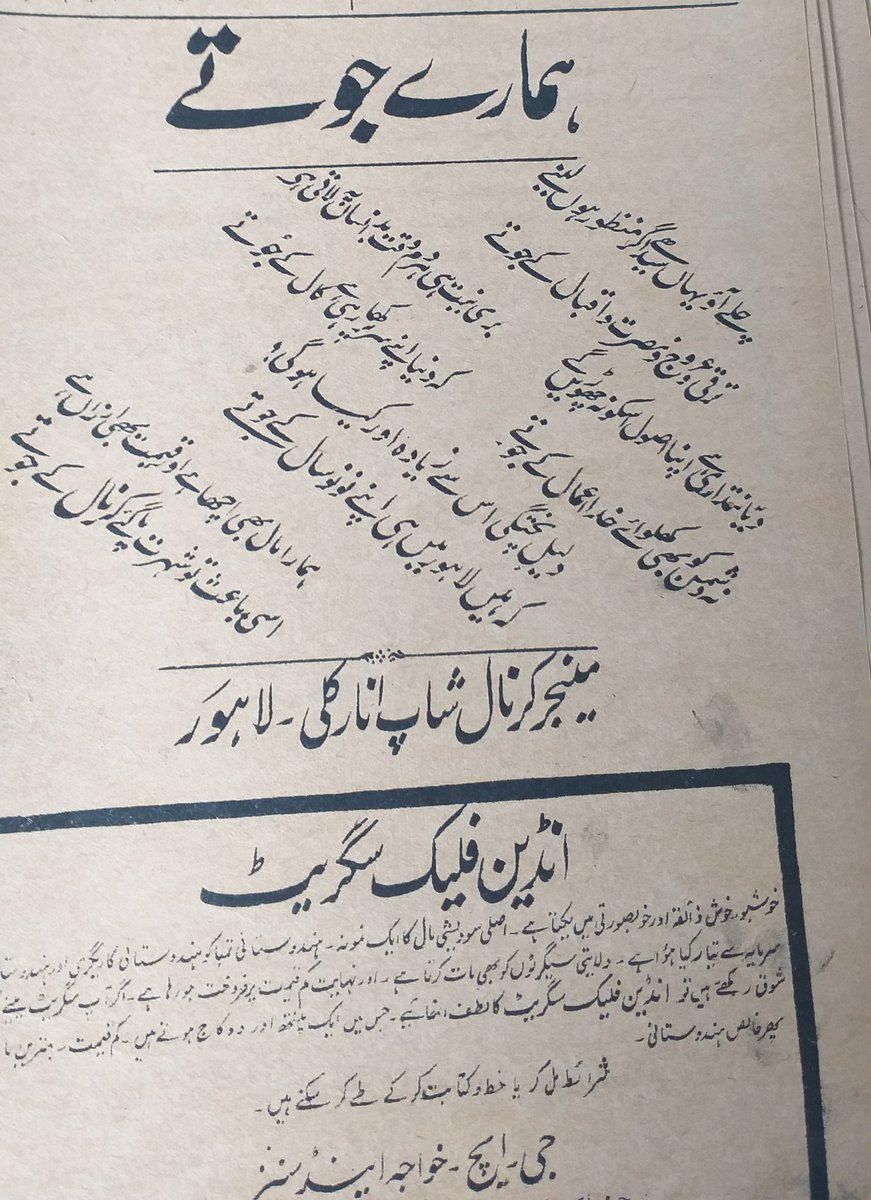 ہمارے جوتے
چلے آؤ یہاں سیدھے اگر منظور ہوں لینے
ترقی و عروج و نصرت و اقبال کے جوتے
بری نیت ہی ہر دم وقت بد انسان لاتی ہے
کہ دنیا اپنے سر پر کھا رہی ہے کال کے جوتے
دیانتداری ہے اپنا اصول اسکو نہ چھوڑیں گے
نہ دشمن کو بھی کھلوائے خدا اعمال کے جوتے
دلیل پختگی اس سے زیادہ اور کیا ہوگی؟
کہ ہیں لاہور میں ہی اپنے نو نو سال کے جوتے
ہمارا مال بھی اچھا ہے اور قیمت بھی ارزاں ہے
اسی باعث تو شہرت پا گئے کرنال کے جوتے
مینجر کرنال شاپ انار کلی ۔ لاہور
انڈین فلیک سگریٹ
خوشبو، خوش ذائقہ اور خوبصورتی میں یکتا ہے ۔ اصلی سودیشی مال کا ایک نمونہ ۔ ہندوستانی تمباکو ہندوستانی کاریگری اور
سرمایہ سے تیار کیا ہوا ہے ۔ ولایتی سیگرٹوں کو بھی مات کرتا ہے ۔ اور نہایت کم قیمت پر فروخت ہو رہا ہے ۔ اگر آپ سگریٹ پینے
شوق رکھتے ہیں تو انڈین فلیک سگریٹ کا لطف اٹھائیے ۔ جس میں ایک اور دہ کاج ہوتے ہیں ۔ کم قیمت ۔ بہترین
پھر خالص ہندوستانی ۔
شرائط مل کر یا خط و کتابت کر کے طے کر سکتے ہیں ۔
جی ۔ ایچ ۔ خواجہ اینڈ سنز